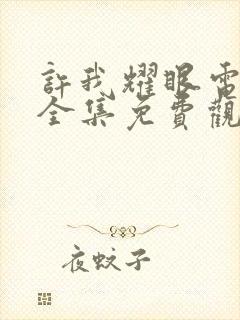 許我耀眼電
全集免費觀
夜蚊子